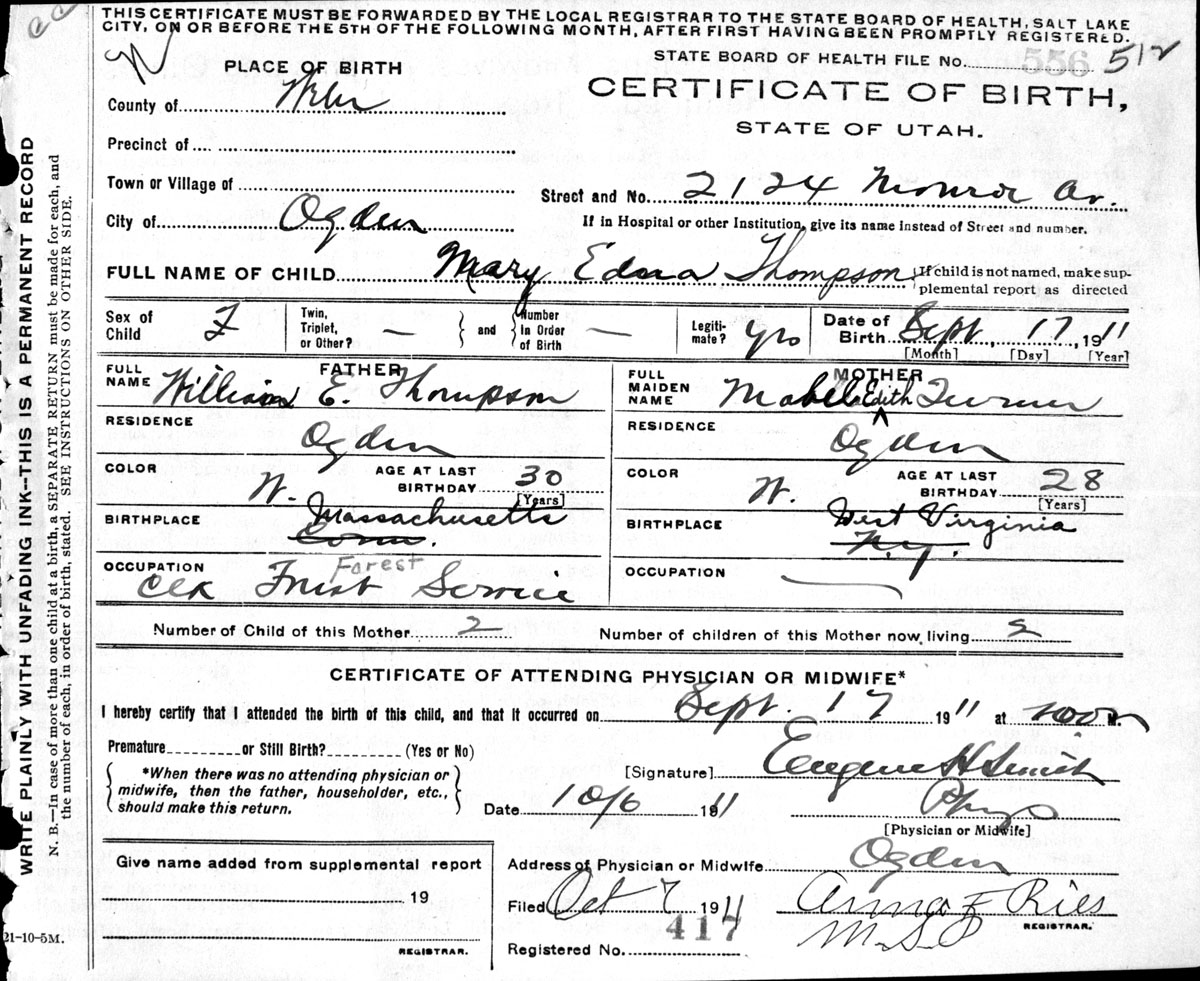 THIS CERTIFICATE MUST BE FORWARDED BY THE LOCAL REGISTRAR TO THE STATE BOARD OF HEALTH, SALT LAKE
CITY, ON OR BEFORE THE 5TH OF THE FOLLOWING MONTH, AFTER FIRST HAVING BEEN PROMPTLY REGISTERED.
STATE BOARD OF HEALTH FILE No. 556 512
PLACE OF BIRTH
CERTIFICATE OF BIRTH,
STATE OF UTAH.
County of Weber
Precinct of
Town or Village of
Street and No. 2124 Monroe Av.
City of Ogden
If in Hospital or other Institution, give its name instead of Street and number.
FULL NAME OF CHILD Mary Edna Thompson {If child is not named, make sup-
plemental report as directed
Sex of Child F
Twin, Triplet, or Other? —
and
Number in Order of Birth —
Legiti-mate? yes
Date of Birth Sept. 17, 1911
[Month] [Day] [Year]
FATHER
FULL NAME William E. Thompson
RESIDENCE Ogden
COLOR W.
AGE AT LAST BIRTHDAY 30
[Years]
BIRTHPLACE Massachusetts
Conn.
OCCUPATION Clk Forest Service
Forest
MOTHER
FULL MAIDEN NAME Mabel Edith Turner
RESIDENCE Ogden
COLOR W.
AGE AT LAST BIRTHDAY 28
[Years]
BIRTHPLACE West Virginia
N.Y.
OCCUPATION
Number of Child of this Mother 2
Number of children of this Mother now living 2
CERTIFICATE OF ATTENDING PHYSICIAN OR MIDWIFE*
I hereby certify that I attended the birth of this child, and that it occurred on Sept. 17 1911 at M.
Premature or Still Birth? (Yes or No)
*When there was no attending physician or
midwife, then the father, householder, etc.,
should make this return.
[Signature] Eugene H Smith
Date 10/6 1911
Phys
[Physician or Midwife]
Give name added from supplemental report
19
REGISTRAR.
Address of Physician or Midwife Ogden
Filed Oct 7 1911
Anna F Ries
REGISTRAR.
Registered No. 417
21-10-5M.
WRITE PLAINLY WITH UNFADING INK--THIS IS A PERMANENT RECORD
N. B.—In case of more than one child at a birth, a SEPARATE RETURN must be made for each, and
the number of each, in order of birth, stated. SEE INSTRUCTIONS ON OTHER SIDE.